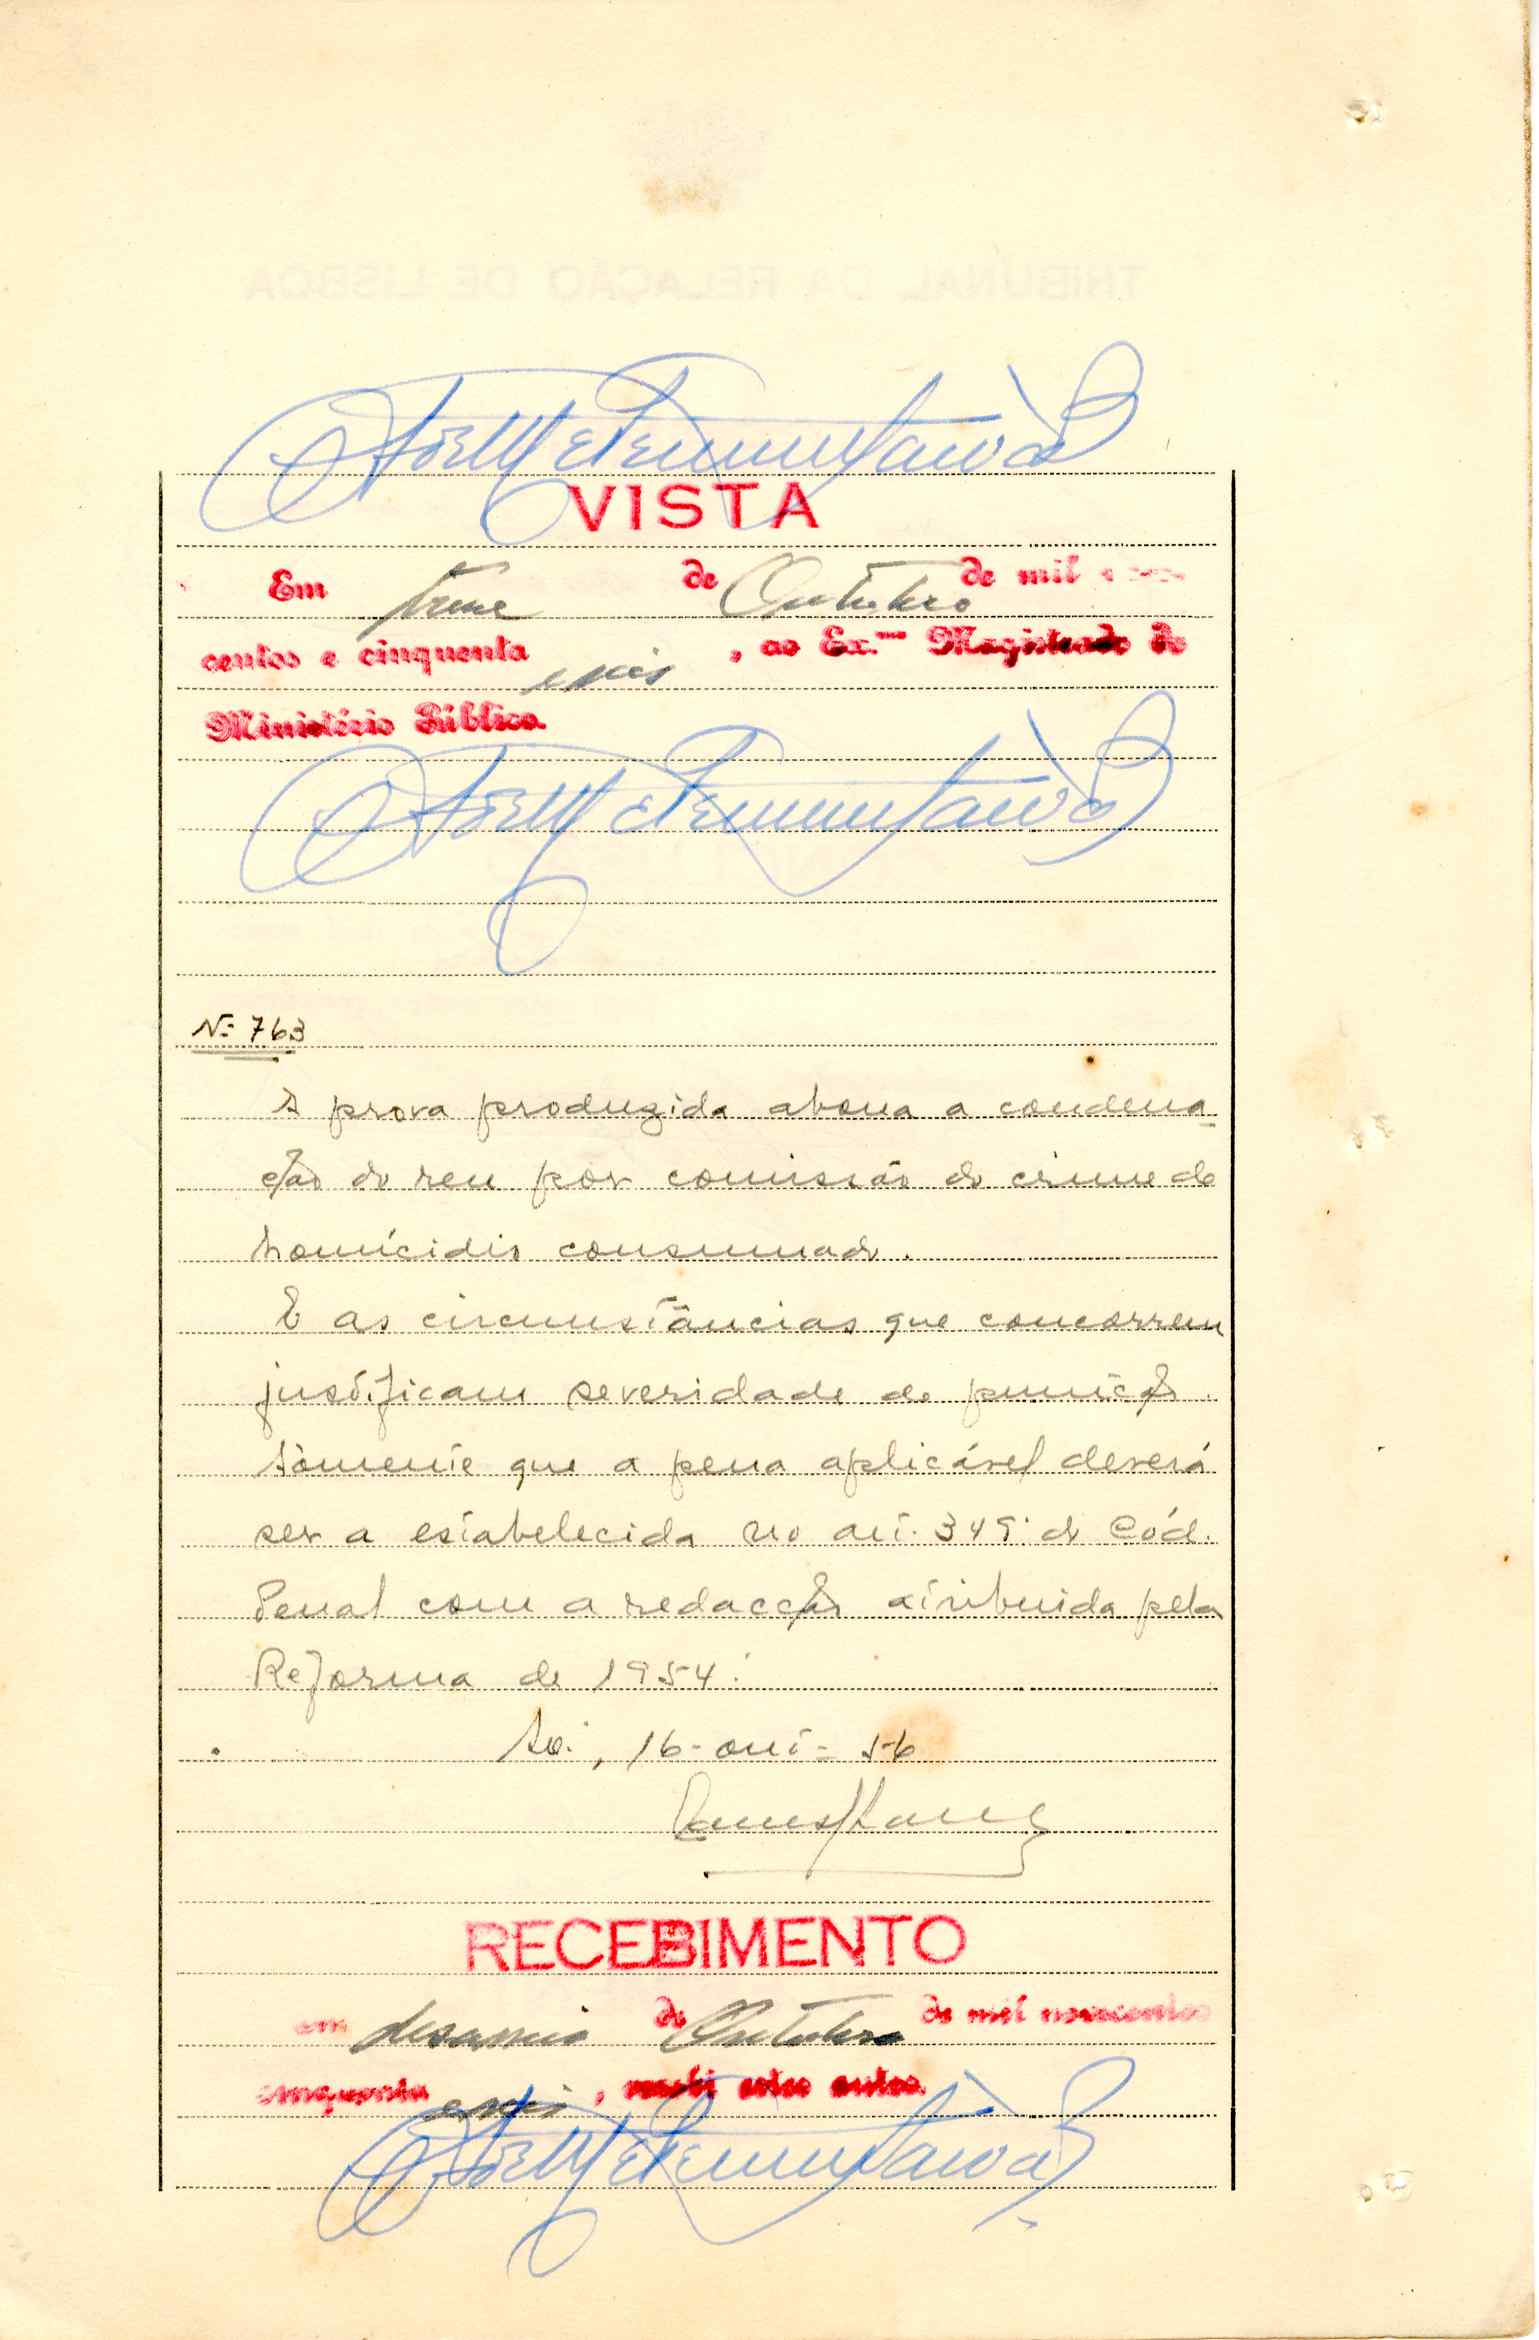 VISTA
Em treze de Outubro de mil e nove
centos e cinquenta e seis, ao Ex.mo Magistrado do
Ministério Público.
Nº 763
A prova produzida abona a condena
ção do reu por comissão do crime de
homícidio consumado.
E as circunstâncias que concorrem
justificam severidade de punição.
Sòmente que a pena aplicável deverá
ser a estabelecida no art. 349º do Cód.
Penal com a redacção atribuida pela
Reforma de 1954.
16-out-56
RECEBIMENTO
em desasseis de Outubro de mil novecentos
cinquenta e seis, recebi estes autos.